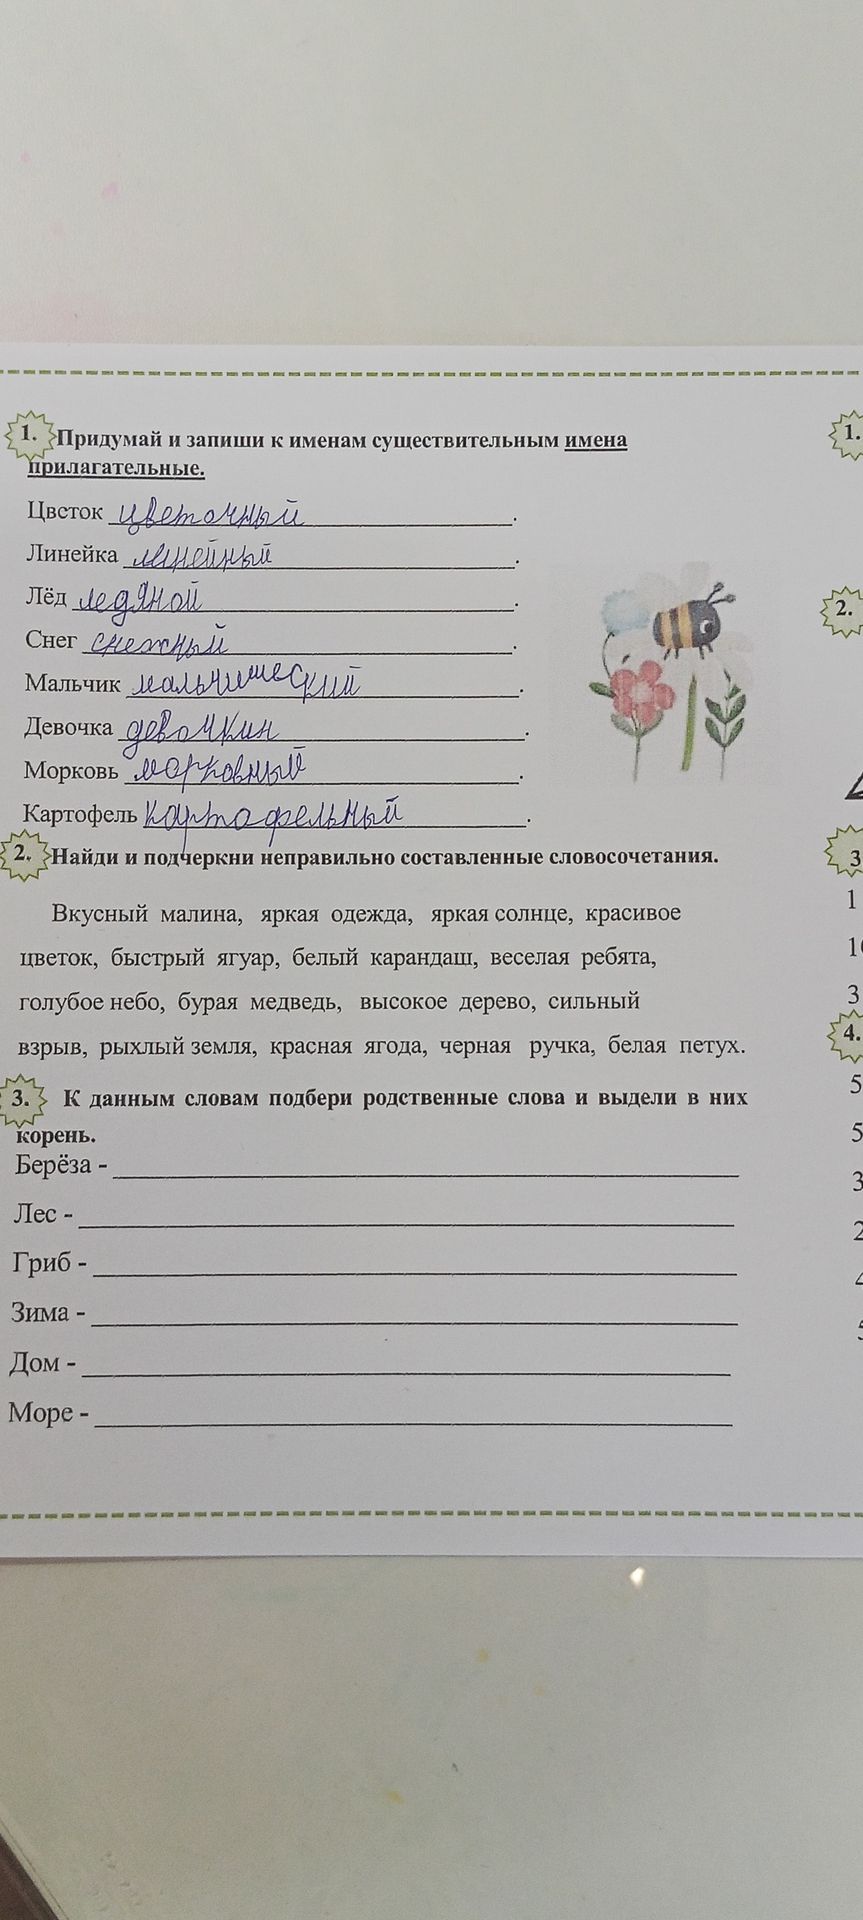 1. Придумай и запиши к именам существительным имена
прилагательные.
Цветок цветочный.
Линейка линейный.
Лёд ледяной.
Снег снежный.
Мальчик мальчишеский.
Девочка девочкин.
Морковь морковный.
Картофель картофельный.
2. Найди и подчеркни неправильно составленные словосочетания.
Вкусный малина, яркая одежда, яркая солнце, красивое
цветок, быстрый ягуар, белый карандаш, веселая ребята,
голубое небо, бурая медведь, высокое дерево, сильный
взрыв, рыхлый земля, красная ягода, черная ручка, белая петух.
3. К данным словам подбери родственные слова и выдели в них
корень.
Берёза -
Лес -
Гриб -
Зима -
Дом -
Море -
1.
2.
3
1
3
4.
5
5
3
2